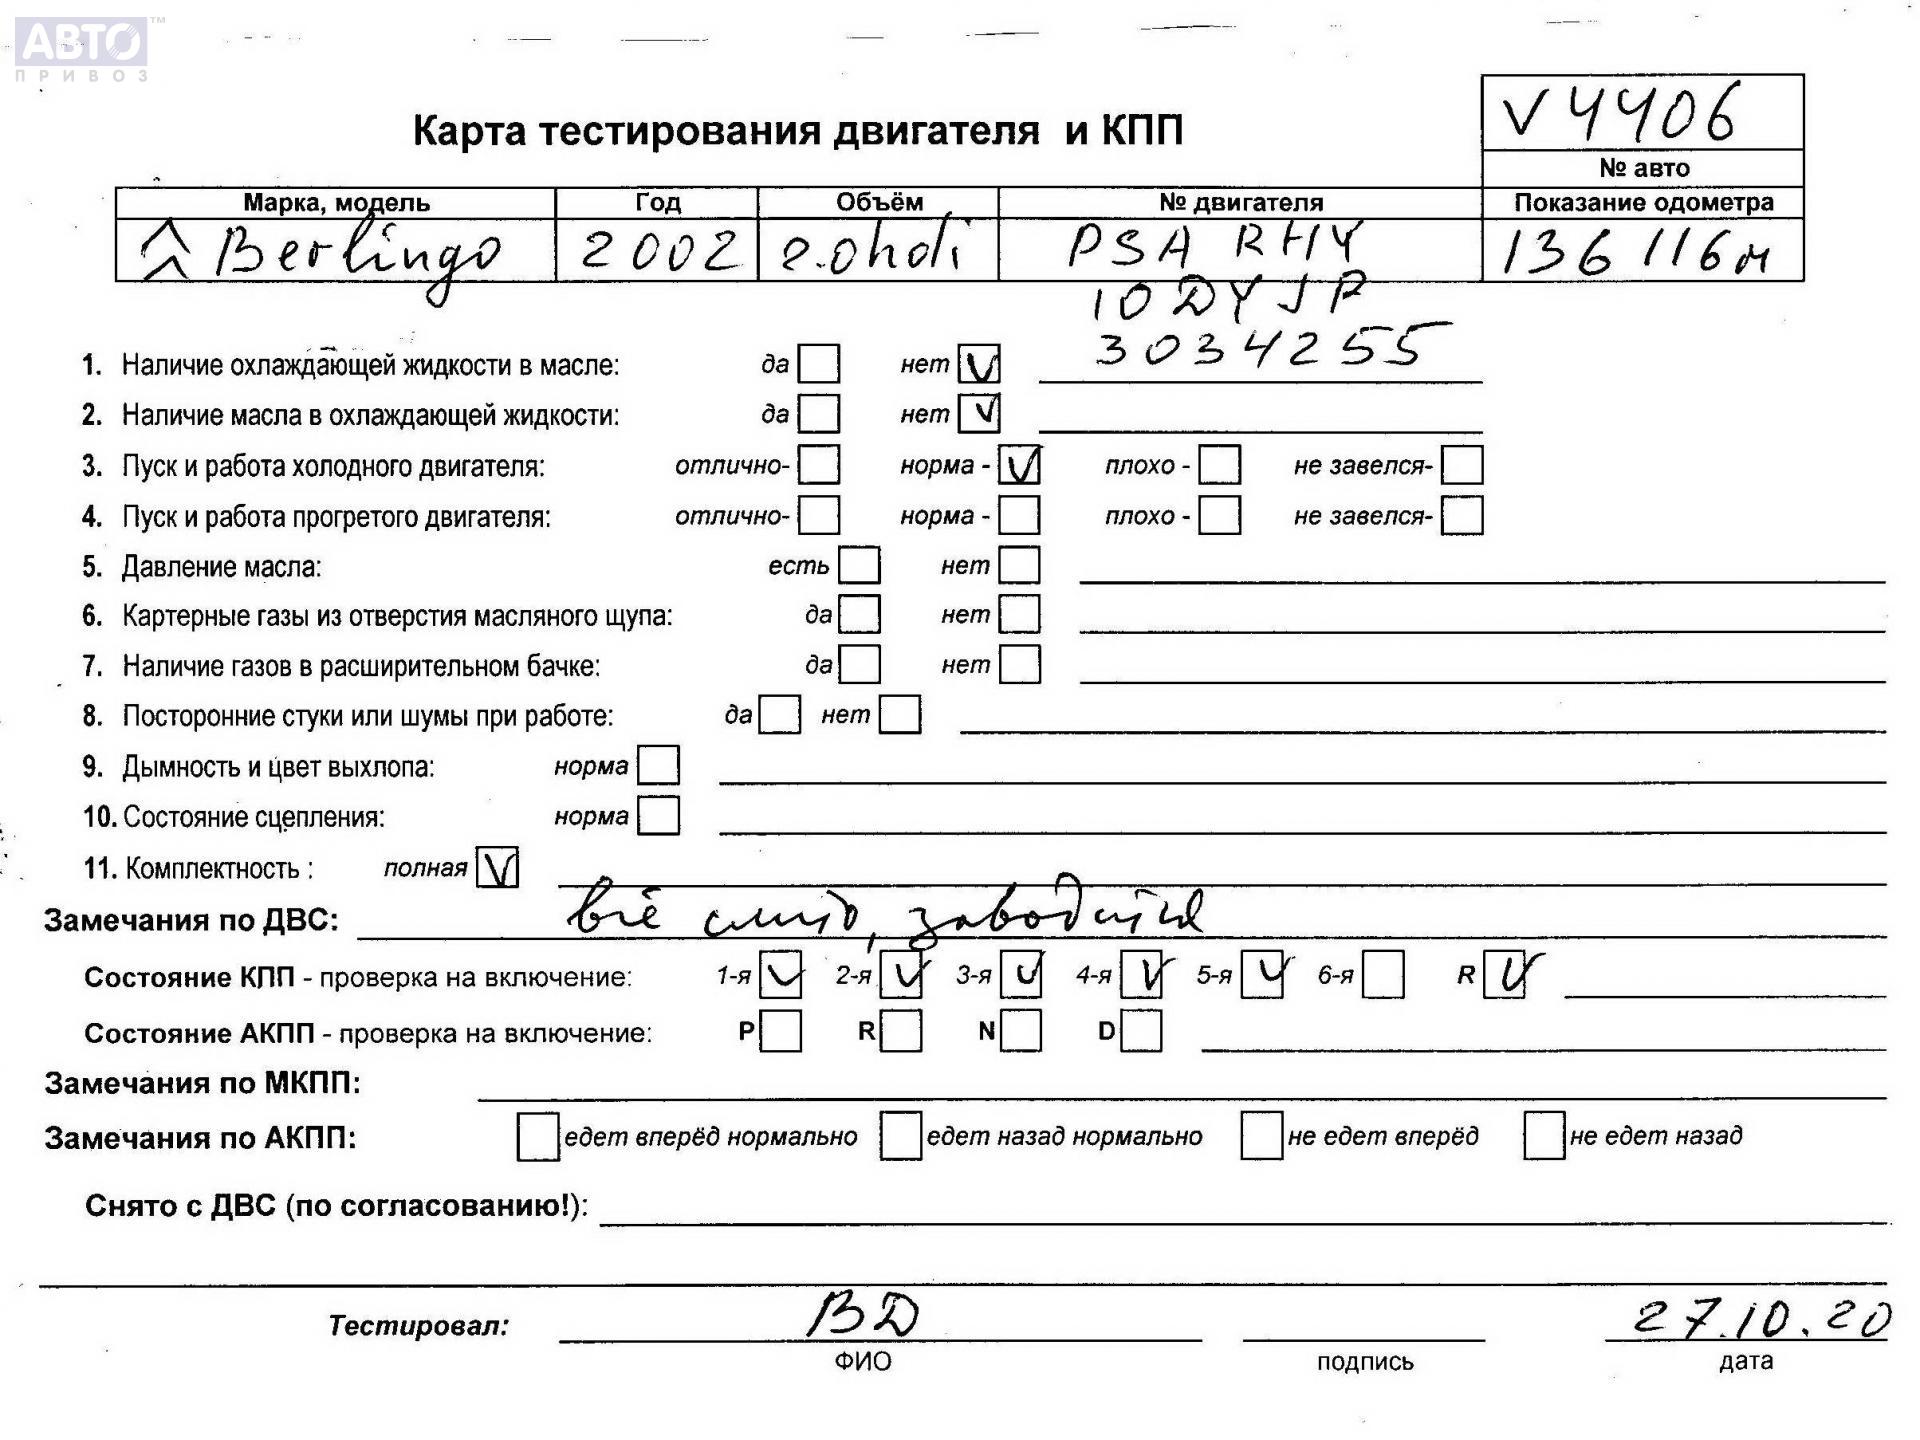 АВТО™
ПРИВОЗ
V4406
Карта тестирования двигателя и КПП
№ авто
Марка, модель Год Объём № двигателя Показание одометра
Berlingo 2002 2.0hdi PSA RHY 136 116м
10DYJP
3034255
1. Наличие охлаждающей жидкости в масле: да нет V
2. Наличие масла в охлаждающей жидкости: да нет V
3. Пуск и работа холодного двигателя: отлично- норма - V плохо - не завелся-
4. Пуск и работа прогретого двигателя: отлично- норма - плохо - не завелся-
5. Давление масла: есть нет
6. Картерные газы из отверстия масляного щупа: да нет
7. Наличие газов в расширительном бачке: да нет
8. Посторонние стуки или шумы при работе: да нет
9. Дымность и цвет выхлопа: норма
10. Состояние сцепления: норма
11. Комплектность : полная V
Замечания по ДВС: всё слито, заводится
Состояние КПП - проверка на включение: 1-я V 2-я V 3-я V 4-я V 5-я V 6-я R V
Состояние АКПП - проверка на включение: P R N D
Замечания по МКПП:
Замечания по АКПП: едет вперёд нормально едет назад нормально не едет вперёд не едет назад
Снято с ДВС (по согласованию!):
Тестировал: ВД 27.10.20
ФИО подпись дата